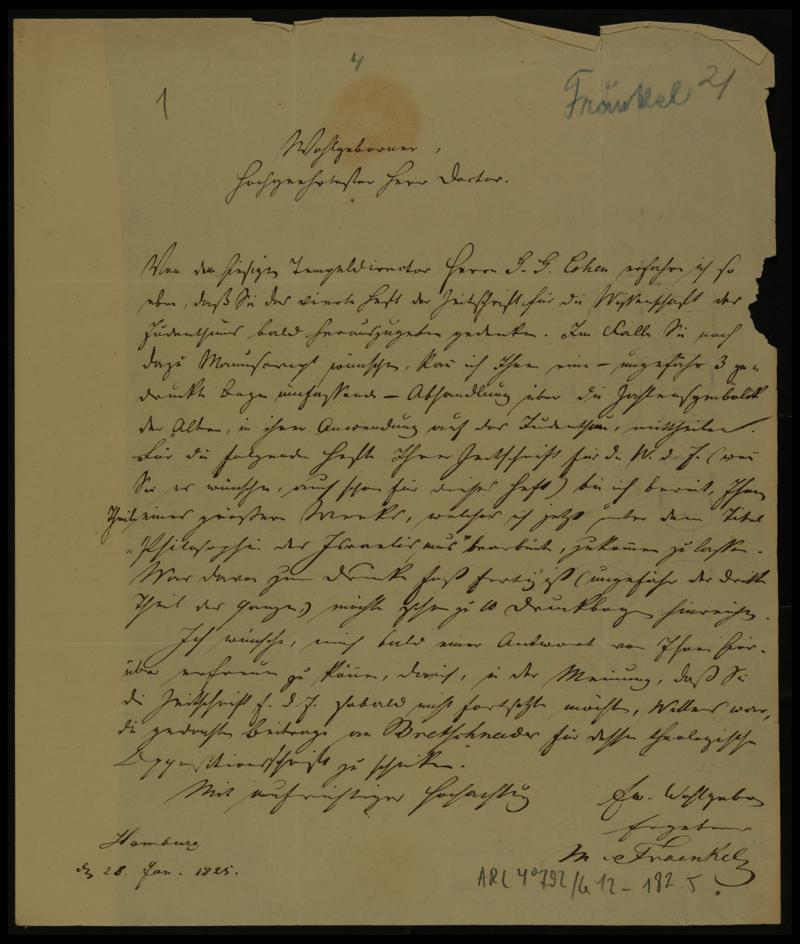 4
1
Fränkel 21
Wohlgeborner,
Hochgeehrtester Herr Doctor.
Von dem hiesigen Tempeldirector Herrn G. G. Cohen erfahre ich so
eben, daß Sie das vierte Heft der Zeitschrift für die Wissenschaft des
Judenthums bald herauszugeben gedenken. Im Falle Sie noch
dazu Manuscript wünschen, kan ich Ihnen eine – ungefähr 3 ge-
druckte Bogen umfassende – Abhandlung über die Zahlensymbolik
der Alten, in ihrer Anwendung auf das Judenthum, mittheilen.
Für die folgenden Hefte Ihrer Zeitschrift für d. W. d. J. (wen
Sie es wünschen, auch schon für dieses Heft) bin ich bereit, Ihnen
Theile eines grösseren Werks, welches ich jetzt unter dem Titel
"Philosophie des Israelismus" bearbeite, zukomen zu lassen.
Was davon zum Drucke fast fertig ist (ungefähr der dritte
Theil des Ganzen) möchte zehn zu 10 Druckbogen hinreichen.
Ich wünsche, mich bald einer Antwort von Ihnen hier-
über erfreuen zu könen, da ich, in der Meinung, daß Sie
die Zeitschrift f. d. J. sobald nicht fortsetzen möchten, Willens war,
die gedachten Beiträge an Bretschneider für dessen theologische
Oppositionsschrift zu schicken.
Mit aufrichtiger Hochachtung
Ew. Wohlgeboren
Ergebener
M. Fraenkel
Hamburg
den 28. Jan. 1825.
ARC 4° 792/G 12 - 182 5.